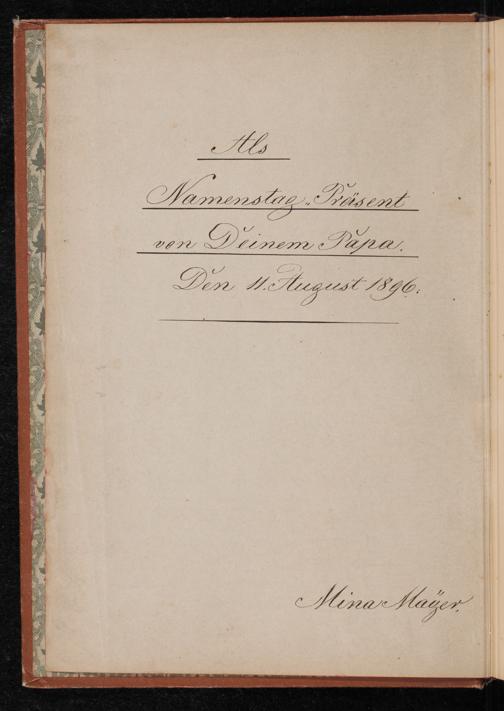 Als
Namenstag-Präsent
von Deinem Papa.
Den 11. August 1896.
Mina Maÿer.